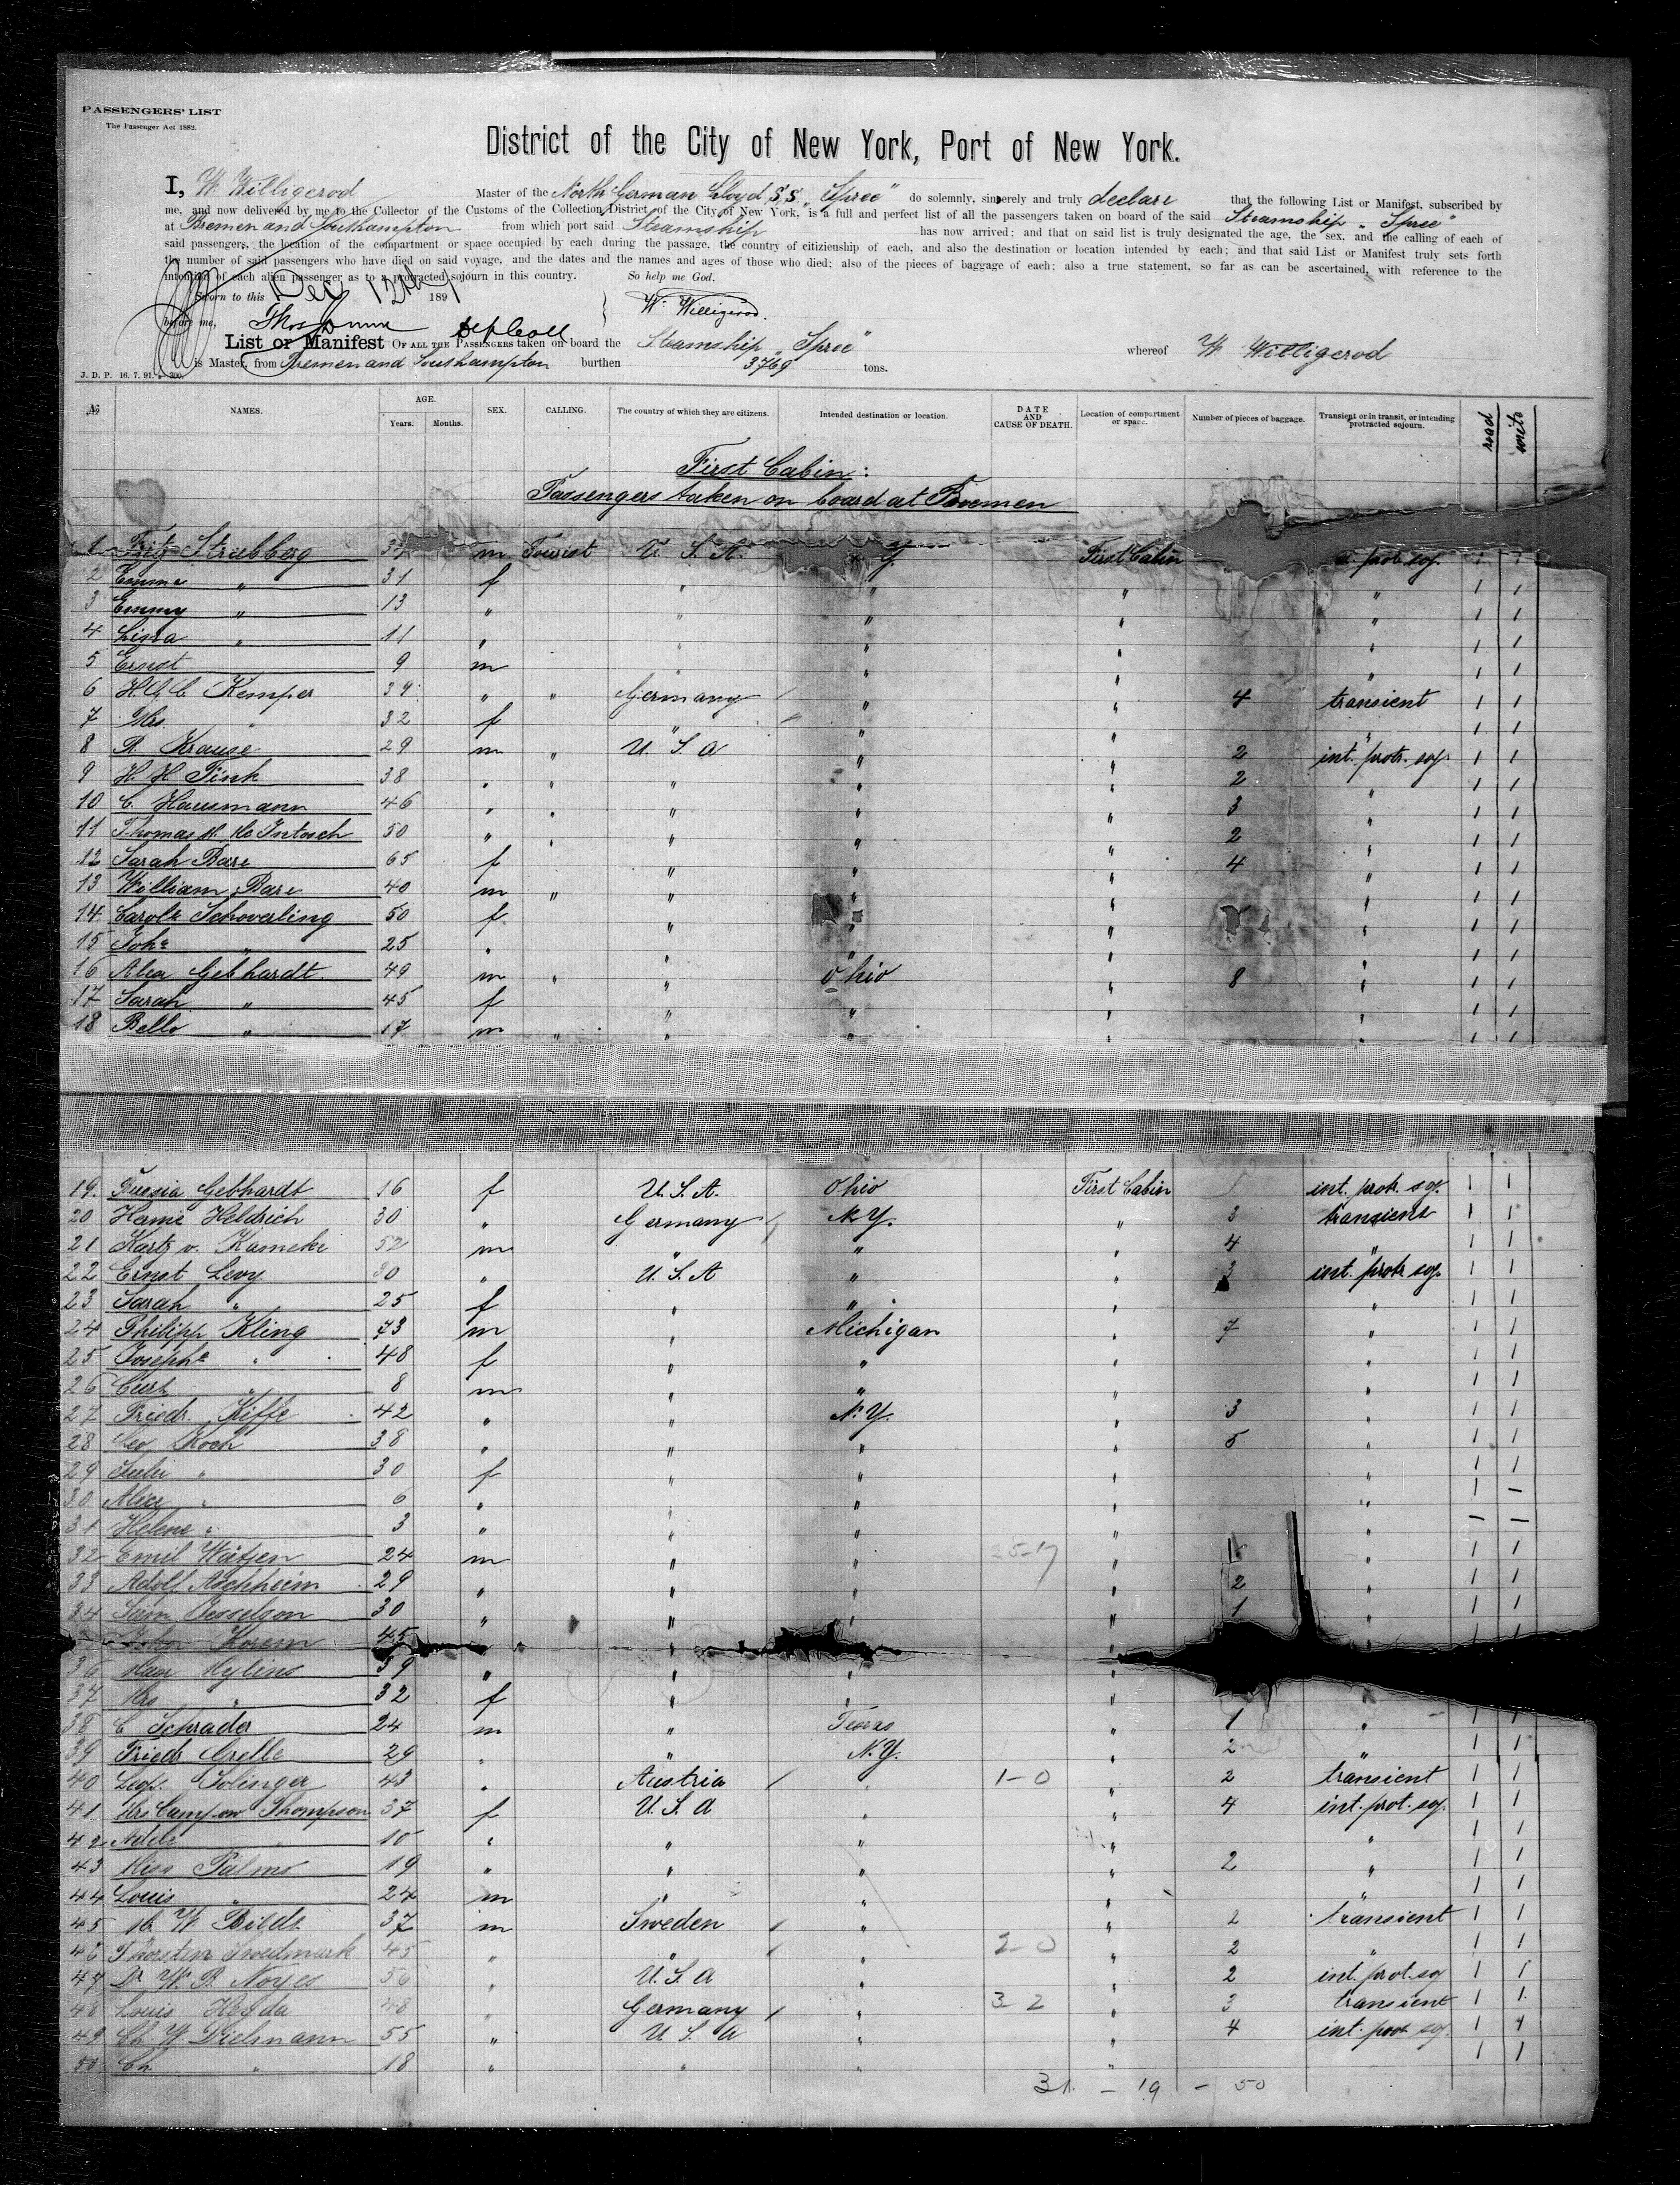 PASSENGERS' LIST
The Passenger Act 1882.
District of the City of New York, Port of New York.
I, W. Willigerod Master of the North German Lloyd S.S. „Spree" do solemnly, sincerely and truly declare that the following List or Manifest, subscribed by
me, and now delivered by me to the Collector of the Customs of the Collection District of the City of New York, is a full and perfect list of all the passengers taken on board of the said Steamship „Spree"
at Bremen and Southampton from which port said Steamship has now arrived; and that on said list is truly designated the age, the sex, and the calling of each of
said passengers, the location of the compartment or space occupied by each during the passage, the country of citizienship of each, and also the destination or location intended by each; and that said List or Manifest truly sets forth
the number of said passengers who have died on said voyage, and the dates and the names and ages of those who died; also of the pieces of baggage of each; also a true statement, so far as can be ascertained, with reference to the
intention of each alien passenger as to a protracted sojourn in this country. So help me God.
Sworn to this Dec 12th 1891
before me, Thos Dunn Dep Coll W. Willigerod.
List or Manifest OF ALL THE PASSENGERS taken on board the Steamship „Spree" whereof W Willigerod
is Master, from Bremen and Southampton burthen 3769 tons.
J. D. P. 16. 7. 91. 300.
№ NAMES. AGE. Years. Months. SEX. CALLING. The country of which they are citizens. Intended destination or location. DATE AND CAUSE OF DEATH. Location of compartment or space. Number of pieces of baggage. Transient or in transit, or intending protracted sojourn. read write
First Cabin:
Passengers taken on board at Bremen
1 Fritz Strubberg 37 m Tourist U. S. A. Y. First Cabin prot. soj. 1 1
2 Emma „ 31 f „ „ „ „ 1 1
3 Emmy „ 13 „ „ „ „ „ 1 1
4 Lissa „ 11 „ „ „ „ „ 1 1
5 Ernst 9 m „ „ „ „ 1 1
6 H. G. C Kemper 39 „ „ Germany „ „ 4 transient 1 1
7 Mrs. „ 32 f „ „ „ „ 1 1
8 R. Krause 29 m „ U. S. A „ „ 2 int. protr. soj. 1 1
9 H. H. Fink 38 „ „ „ „ „ 2 „ 1 1
10 C. Hausmann 46 „ „ „ „ „ 3 „ 1 1
11 Thomas M. Mc Intosch 50 „ „ „ „ „ 2 „ 1 1
12 Sarah Bare 65 f „ „ „ 4 „ 1 1
13 William Bare 40 m „ „ „ „ „ 1 1
14 Carola Schoverling 50 f „ „ „ „ 1 1
15 Johe „ 25 „ „ „ „ „ 1 1
16 Alex Gebhardt. 49 m „ „ Ohio „ 8 „ 1 1
17 Sarah „ 45 f „ „ „ „ 1 1
18 Bello „ 17 m „ „ „ „ „ 1 1
19. Gebhardt 16 f U. S. A. Ohio First Cabin int. protr. soj. 1 1
20 Heldrich 30 „ Germany N. Y. „ 3 transient 1 1
21 v. Kameke 52 m „ „ „ 4 „ 1 1
22 Ernst Levy 30 „ U. S. A „ „ 3 int. protr soj. 1 1
23 Sarah „ 25 f „ „ „ „ 1 1
24 Philipp Kling 73 m „ Michigan „ 7 „ 1 1
25 Josephe „ 48 f „ „ „ „ 1 1
26 Curt „ 8 m „ „ „ „ 1 1
27 Friedr. Kiffe 42 „ „ N. Y. „ 3 „ 1 1
28 Geo Koch 38 „ „ „ „ 5 „ 1 1
29 Julie „ 30 f „ „ „ 1 1
30 Alice „ 6 „ „ „ „ „ 1 —
31 Helene „ 3 „ „ „ „ „ — —
32 Emil Wätjen 24 m „ „ 25-17 „ 1 „ 1 1
33 Adolf Aschheim 29 „ „ „ „ 2 „ 1 1
34 Sam Jesselson 30 „ „ „ „ 1 „ 1 1
John 45 „ „ „ „ 1 1
36 Max Mylius 39 „ „ „ „
37 Mrs „ 32 f „ „ „
38 C Schrader 24 m „ Texas „ 1 „ 1 1
39 Friedr Grelle 29 „ „ N. Y. „ 2 „ 1 1
40 Leop. Solinger 43 „ Austria „ 1-0 „ 2 transient 1 1
41 Mrs Thompson 37 f U. S. A „ „ 4 int. prot. soj. 1 1
42 Adele 10 „ „ „ „ „ 1 1
43 Miss Palmo 19 „ „ „ „ 2 „ 1 1
44 Louis „ 24 m „ „ „ „ 1 1
45 W Bildt 37 m Sweden „ „ 2 transient 1 1
46 Thorsten Svedmark 45 „ „ „ 2-0 „ 2 „ 1 1
47 Dr W. B. Noyes 56 „ U. S. A „ „ 2 int. prot. soj 1 1
48 Louis 48 „ Germany „ 3-2 „ 3 transient 1 1
49 Ch. W. Dielmann 55 „ U. S. A „ „ 4 int. prot soj. 1 1
50 Ch. „ 18 „ „ „ „ 1 1
31 - 19 - 50